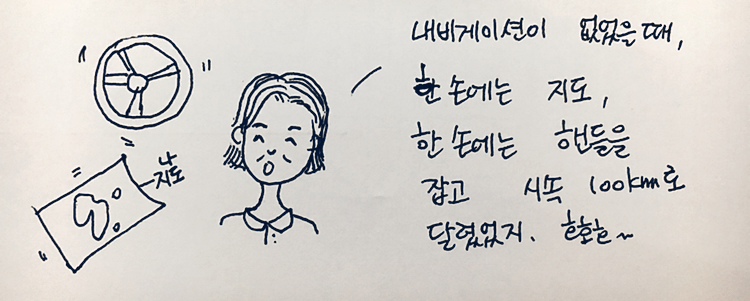 내비게이션이 없었을 때,
한 손에는 지도,
한 손에는 핸들을
잡고 시속 100km로
달렸었지. 호호호~
나
지도